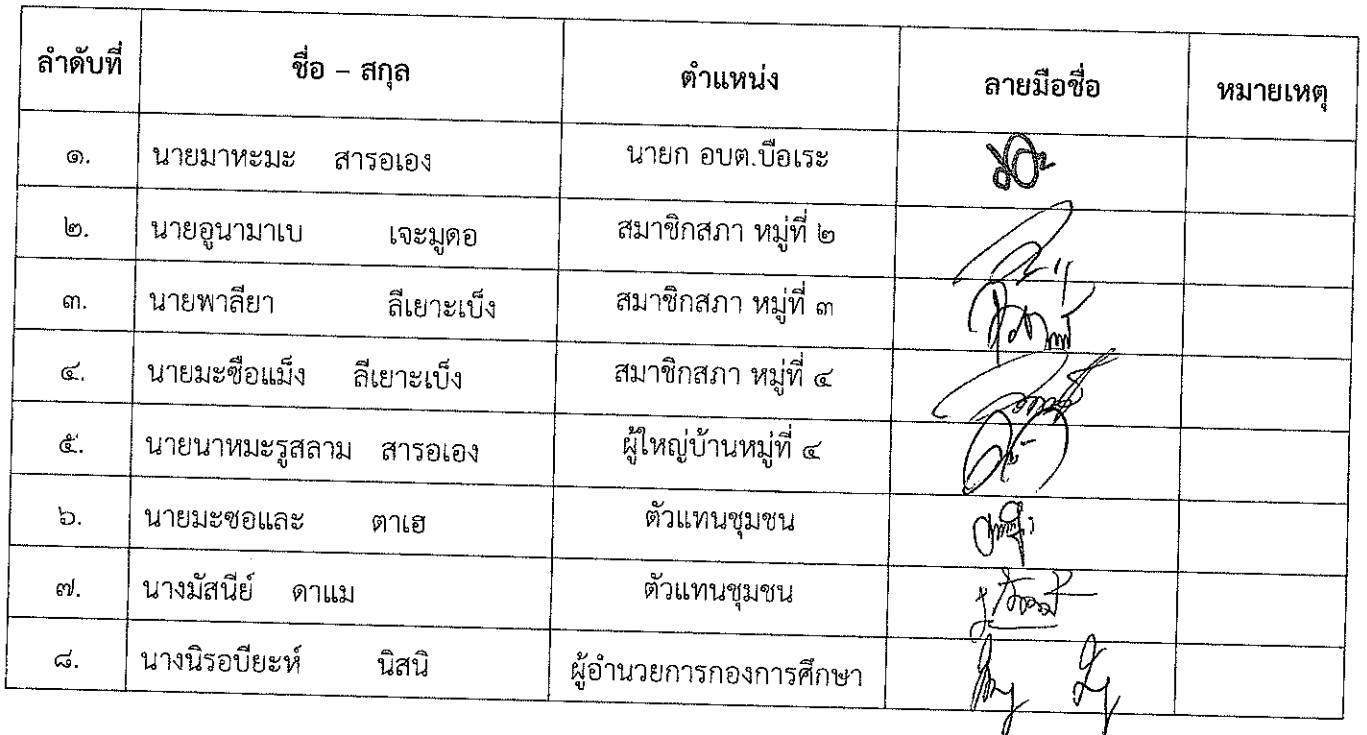 ลำดับที่ ชื่อ – สกุล ตำแหน่ง ลายมือชื่อ หมายเหตุ
๑. นายมาหะมะ สารอเอง นายก อบต.บือเระ
๒. นายอูนามาเบ เจะมูดอ สมาชิกสภา หมู่ที่ ๒
๓. นายพาลียา ลีเยาะเบ็ง สมาชิกสภา หมู่ที่ ๓
๔. นายมะซือแม็ง ลีเยาะเบ็ง สมาชิกสภา หมู่ที่ ๔
๕. นายนาหมะรูสลาม สารอเอง ผู้ใหญ่บ้านหมู่ที่ ๔
๖. นายมะซอและ ตาเฮ ตัวแทนชุมชน
๗. นางมัสนีย์ ดาแม ตัวแทนชุมชน
๘. นางนิรอบียะห์ นิสนิ ผู้อำนวยการกองการศึกษา